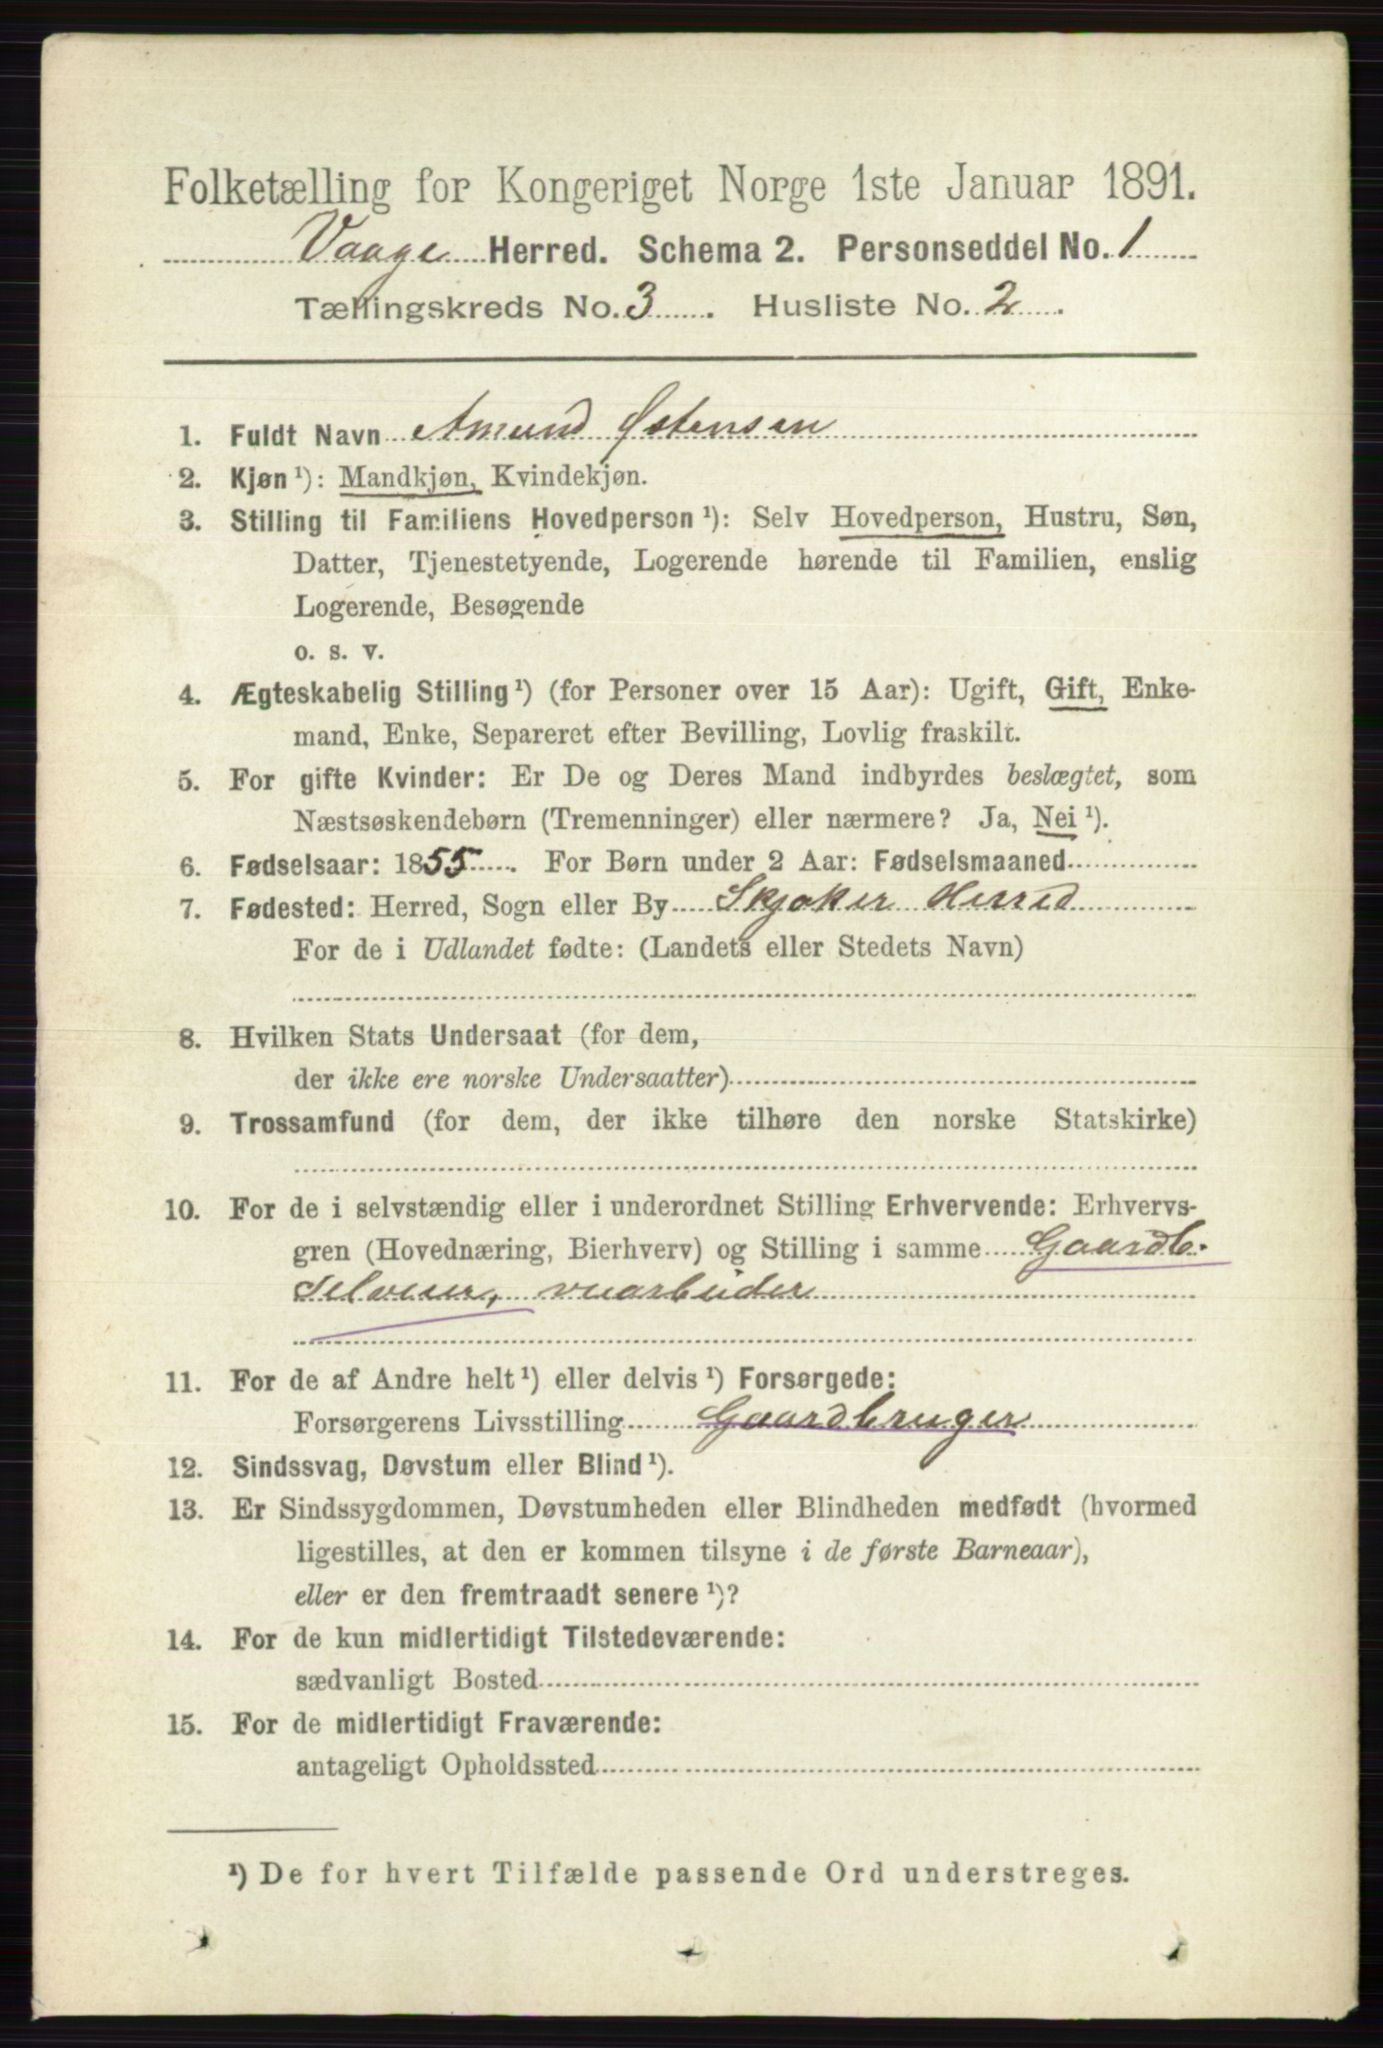 Folketælling for Kongeriget Norge 1ste Januar 1891.
Vaage Herred. Schema 2. Personseddel No. 1
Tællingskreds No. 3. Husliste No. 2.
1. Fuldt Navn Amund Østensen
2. Kjøn ¹): Mandkjøn, Kvindekjøn.
3. Stilling til Familiens Hovedperson ¹): Selv Hovedperson, Hustru, Søn,
Datter, Tjenestetyende, Logerende hørende til Familien, enslig
Logerende, Besøgende
o. s. v.
4. Ægteskabelig Stilling ¹) (for Personer over 15 Aar): Ugift, Gift, Enke-
mand, Enke, Separeret efter Bevilling, Lovlig fraskilt.
5. For gifte Kvinder: Er De og Deres Mand indbyrdes beslægtet, som
Næstsøskendebørn (Tremenninger) eller nærmere? Ja, Nei ¹).
6. Fødselsaar: 1855. For Børn under 2 Aar: Fødselsmaaned
7. Fødested: Herred, Sogn eller By Skjaker Herred
For de i Udlandet fødte: (Landets eller Stedets Navn)
8. Hvilken Stats Undersaat (for dem,
der ikke ere norske Undersaatter)
9. Trossamfund (for dem, der ikke tilhøre den norske Statskirke)
10. For de i selvstændig eller i underordnet Stilling Erhvervende: Erhvervs-
gren (Hovednæring, Bierhverv) og Stilling i samme Gaardb.
Selveier,
11. For de af Andre helt ¹) eller delvis ¹) Forsørgede:
Forsørgerens Livsstilling Gaardbruger
12. Sindssvag, Døvstum eller Blind ¹).
13. Er Sindssygdommen, Døvstumheden eller Blindheden medfødt (hvormed
ligestilles, at den er kommen tilsyne i de første Barneaar),
eller er den fremtraadt senere ¹)?
14. For de kun midlertidigt Tilstedeværende:
sædvanligt Bosted
15. For de midlertidigt Fraværende:
antageligt Opholdssted
¹) De for hvert Tilfælde passende Ord understreges.